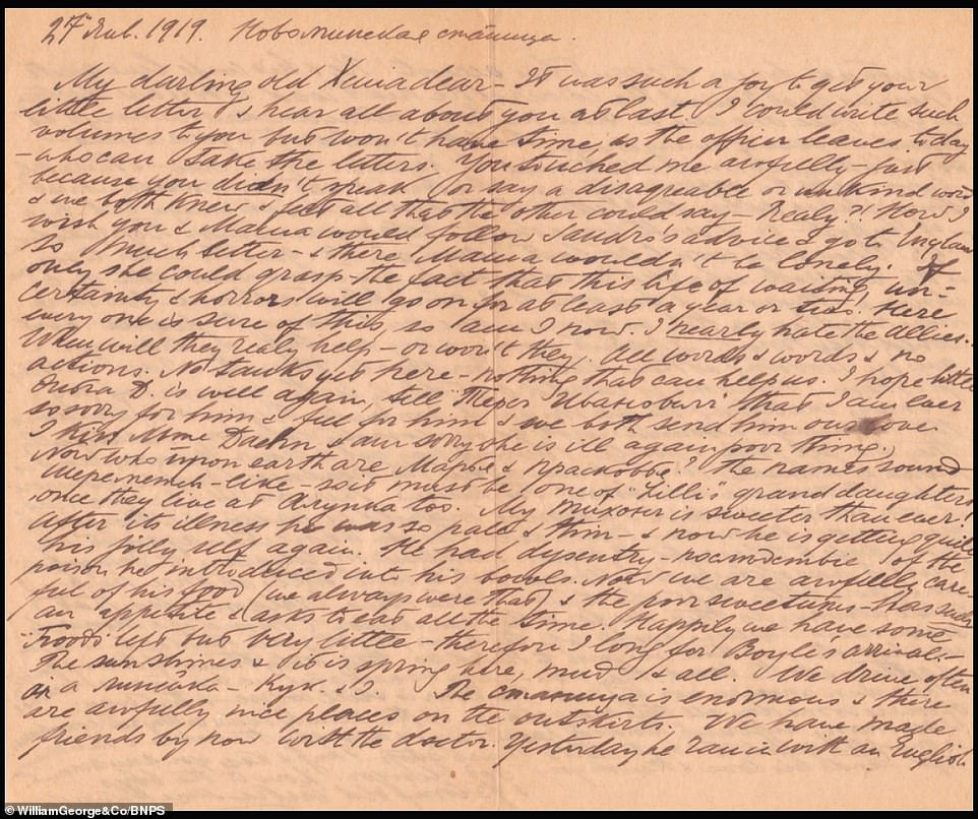 27 Янв. 1919. Новоминская станица.
My darling old Xenia dear – It was such a joy to get your
little letter, & hear all about you at last. I could write such
volumes to you but won't have time, as the officer leaves today
– who can take the letters. You touched me awfully – just
because you didn't speak or say a disagreable or unkind word
& we both knew & felt all that the other could say – Realy?! How I
wish you & Mama would follow Sandro's advice & go to England
so much better – & there Mama wouldn't be lonely. If
only she could grasp the fact that this life of waiting, un-
certainty & horrors will go on for at least a year or two! Here
every one is sure of this, so am I now. I nearly hate the allies.
When will they realy help – or won't they. All words & words & no
actions. No tanks yet here – nothing that can help us. I hope little
D. is well again, tell Иванович that I am ever
so sorry for him & feel for him & we both send him our love
I kiss Mme Daehn & am sorry she is ill again poor thing.
Now who upon earth are Марья & Прасковья? The names sound
like – so it must be one of "Lilli's" granddaughters!
once they live at too. My Тихон is sweeter than ever!
After its illness he was so pale & thin – & now he is getting quite
his jolly self again. He had dysentry – of the
poison he introduced into his bowels. Now we are awfully care-
ful of his food (we always were that) & the poor sweetums – has such
an appetite & asks to eat all the time. Happily we have some
"Foods" left but very little – therefore I long for Boyle's arrival. –
The sun shines & it is spring here, mud & all. We drive often
in a линейка – Кук. & I. The станица is enormous & there
are awfully nice places on the outskirts. We have made
friends by now with the doctor. Yesterday he came with an English
© WilliamGeorge&Co/BNPS